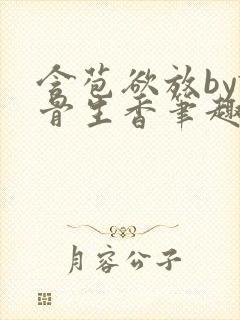 含苞欲放by
骨生香笔趣
月容公子